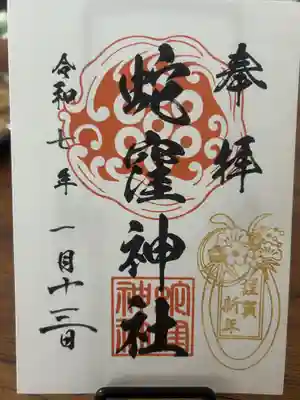 奉拝
蛇窪神社
令和七年 一月十二日
謹賀
新年
蛇窪
神社